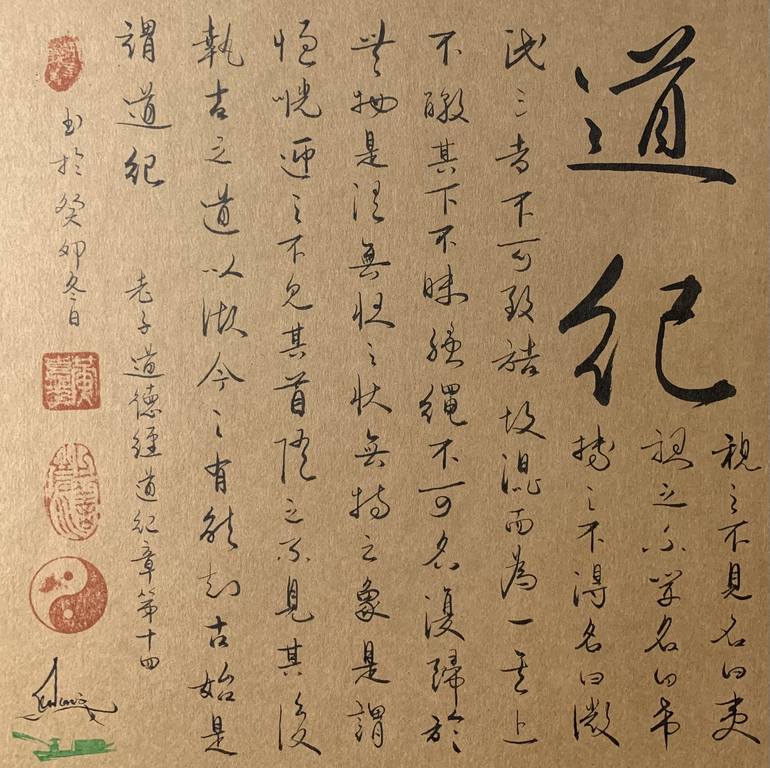 道紀
視之不見名曰夷
視之不箏名曰希
搏之不得名曰微
此三者不可致詰故混而為一其上
不皦其下不昧繩繩不可名復歸於
無物是謂無狀之狀無物之象是謂
惚恍迎之不見其首隨之不見其後
執古之道以御今之有能知古始是
謂道紀
老子道德經道紀章第十四
書於癸卯冬日